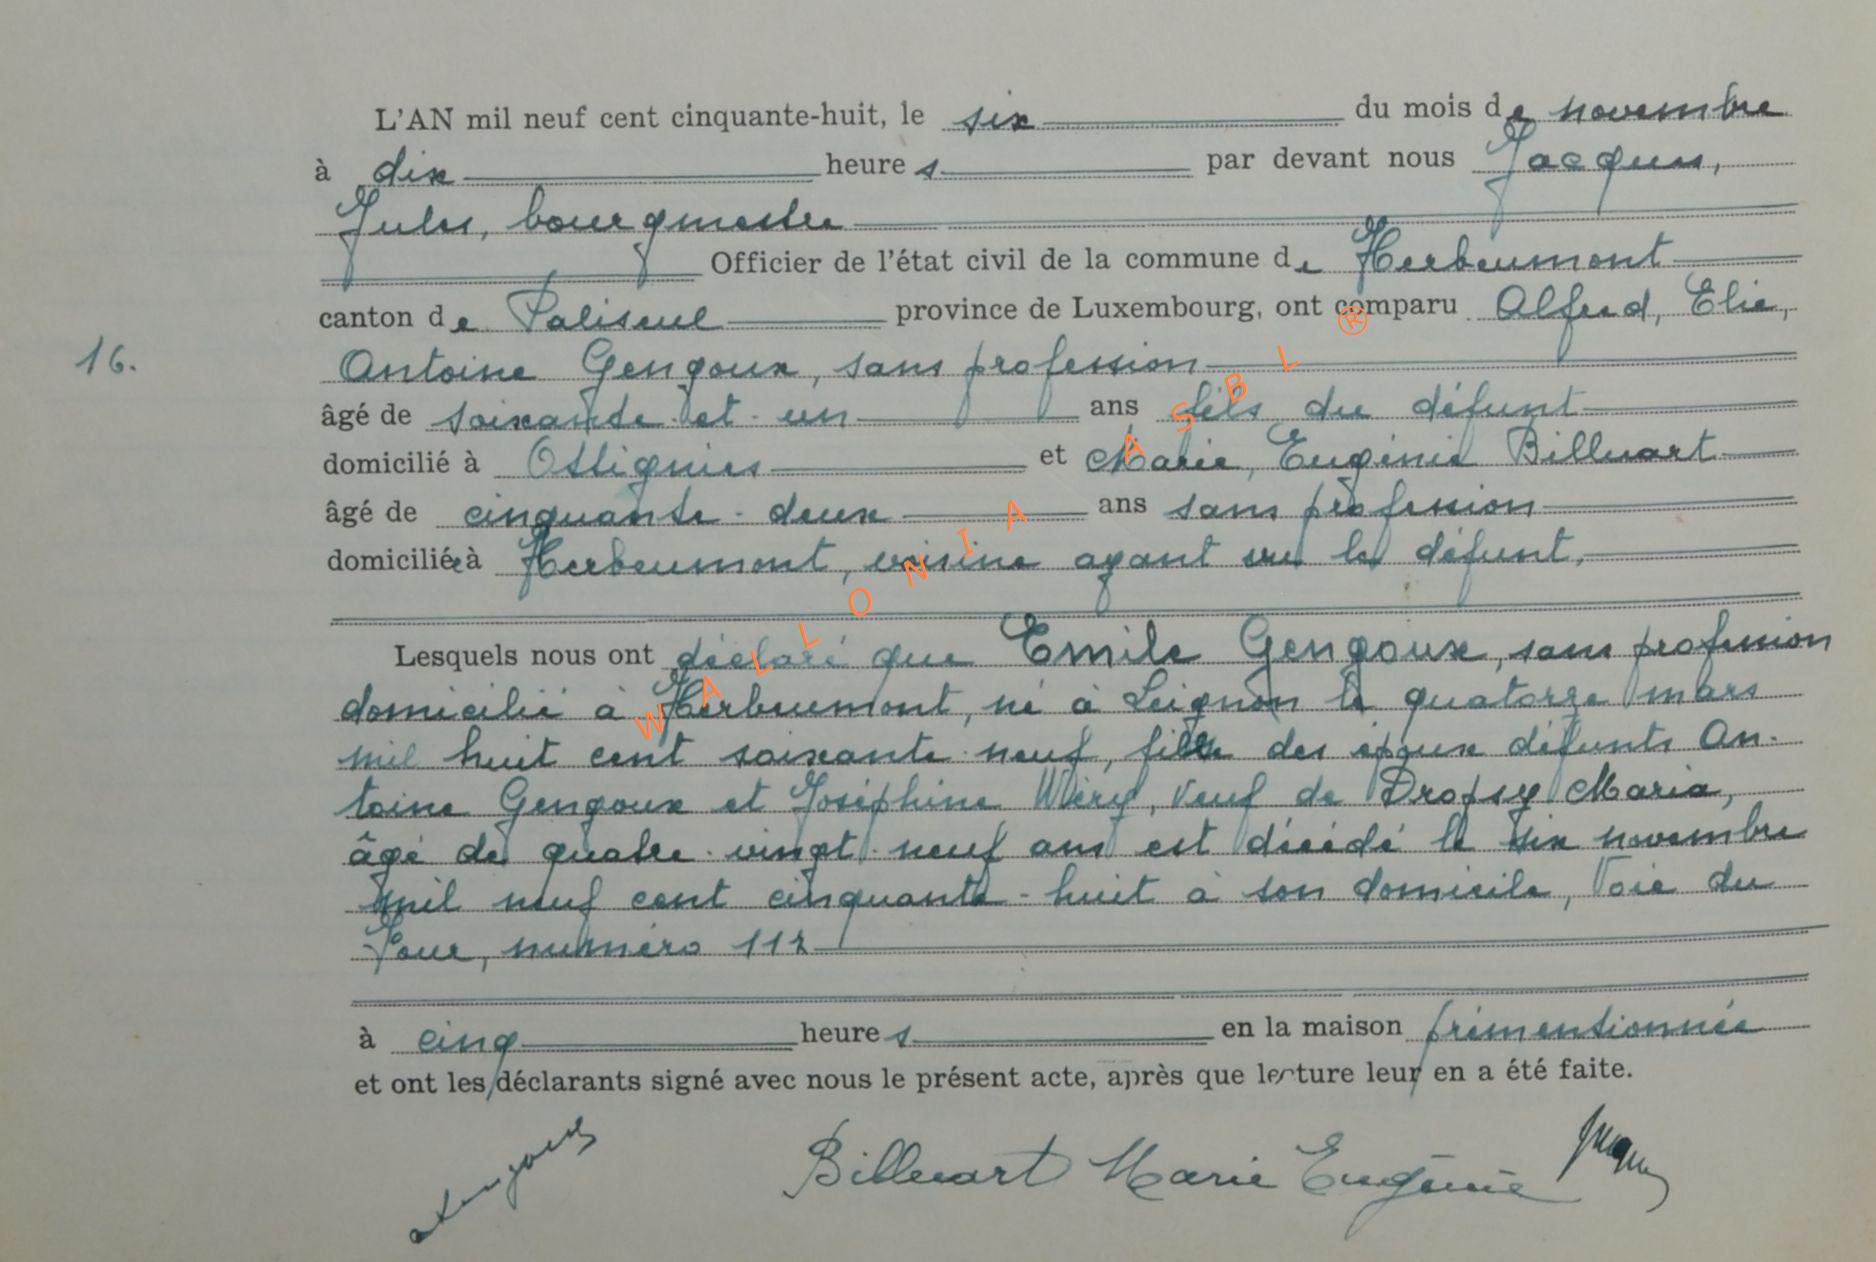 L'AN mil neuf cent cinquante-huit, le six du mois de novembre
à dix heures par devant nous Jacques,
Jules, bourgmestre
Officier de l'état civil de la commune de Herbeumont
canton de Paliseul province de Luxembourg, ont comparu Alfred, Elie,
16. Antoine Gengoux, sans profession
âgé de soixante et un ans fils du défunt
domicilié à Ottignies et Marie, Eugénie Billuart
âgé de cinquante-deux ans sans profession
domiciliée à Herbeumont, voisine ayant vu le défunt,
Lesquels nous ont déclaré que Emile Gengoux, sans profession
domicilié à Herbeumont, né à Leignon le quatorze mars
mil huit cent soixante neuf, fils des époux défunts An-
toine Gengoux et Joséphine Wéry, veuf de Dropsy Maria,
âgé de quatre-vingt-neuf ans est décédé le six novembre
mil neuf cent cinquante-huit à son domicile, Voie du
Four, numéro 112
à cinq heures en la maison prémentionnée
et ont les déclarants signé avec nous le présent acte, après que lecture leur en a été faite.
Billuart Marie Eugénie Jacques
WALLONIA ASBL ®